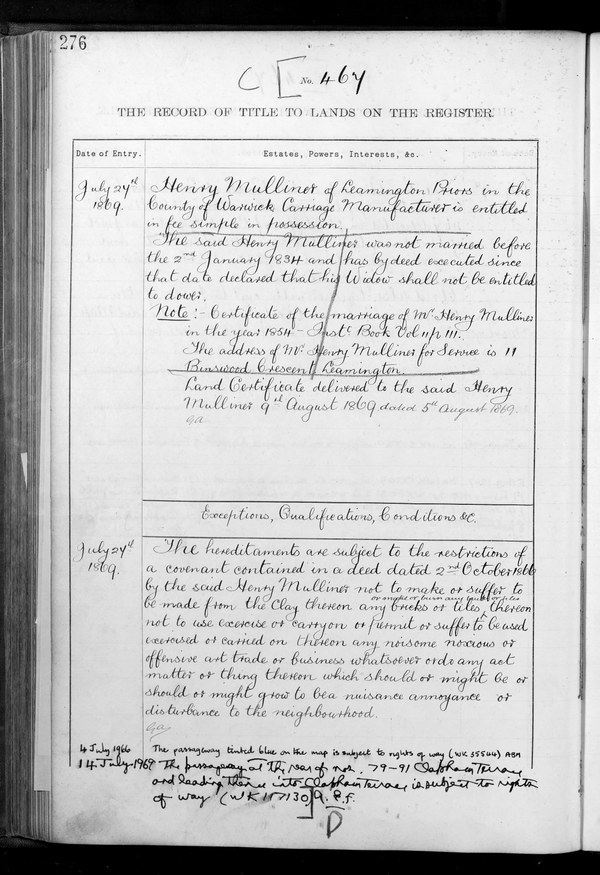 276
C [ No. 467
THE RECORD OF TITLE TO LANDS ON THE REGISTER
Date of Entry.
Estates, Powers, Interests, &c.
July 27th
1869.
Henry Mulliner of Leamington Priors in the
County of Warwick Carriage Manufacturer is entitled
in fee simple in possession.
The said Henry Mulliner was not married before
the 2nd January 1834 and has by deed executed since
that date declared that his Widow shall not be entitled
to dower.
Note :- Certificate of the marriage of Mr. Henry Mulliner
in the year 1854 - Book Vol 11 p 111.
The address of Mr. Henry Mulliner for Service is 11
Binswood Crescent Leamington.
Land Certificate delivered to the said Henry
Mulliner 9th August 1869 dated 5th August 1869.
Exceptions, Qualifications, Conditions &c.
July 27th
1869.
The hereditaments are subject to the restrictions of
a covenant contained in a deed dated 2nd October 1866
by the said Henry Mulliner not to make or suffer to
or make or burn any bricks or tiles
be made from the Clay thereon any bricks or tiles, thereon
not to use exercise or carry on or permit or suffer to be used
exercised or carried on thereon any noisome noxious or
offensive art trade or business whatsoever or do any act
matter or thing thereon which should or might be or
should or might grow to be a nuisance annoyance or
disturbance to the neighbourhood.
4 July 1966
The passageway tinted blue on the map is subject to rights of way (WK 35544)
14 July 1969
The passageway at the rear of nos. 79-91 Clapham Terrace
and leading thence into Clapham Terrace is subject to rights
of way (WK 157130)
D